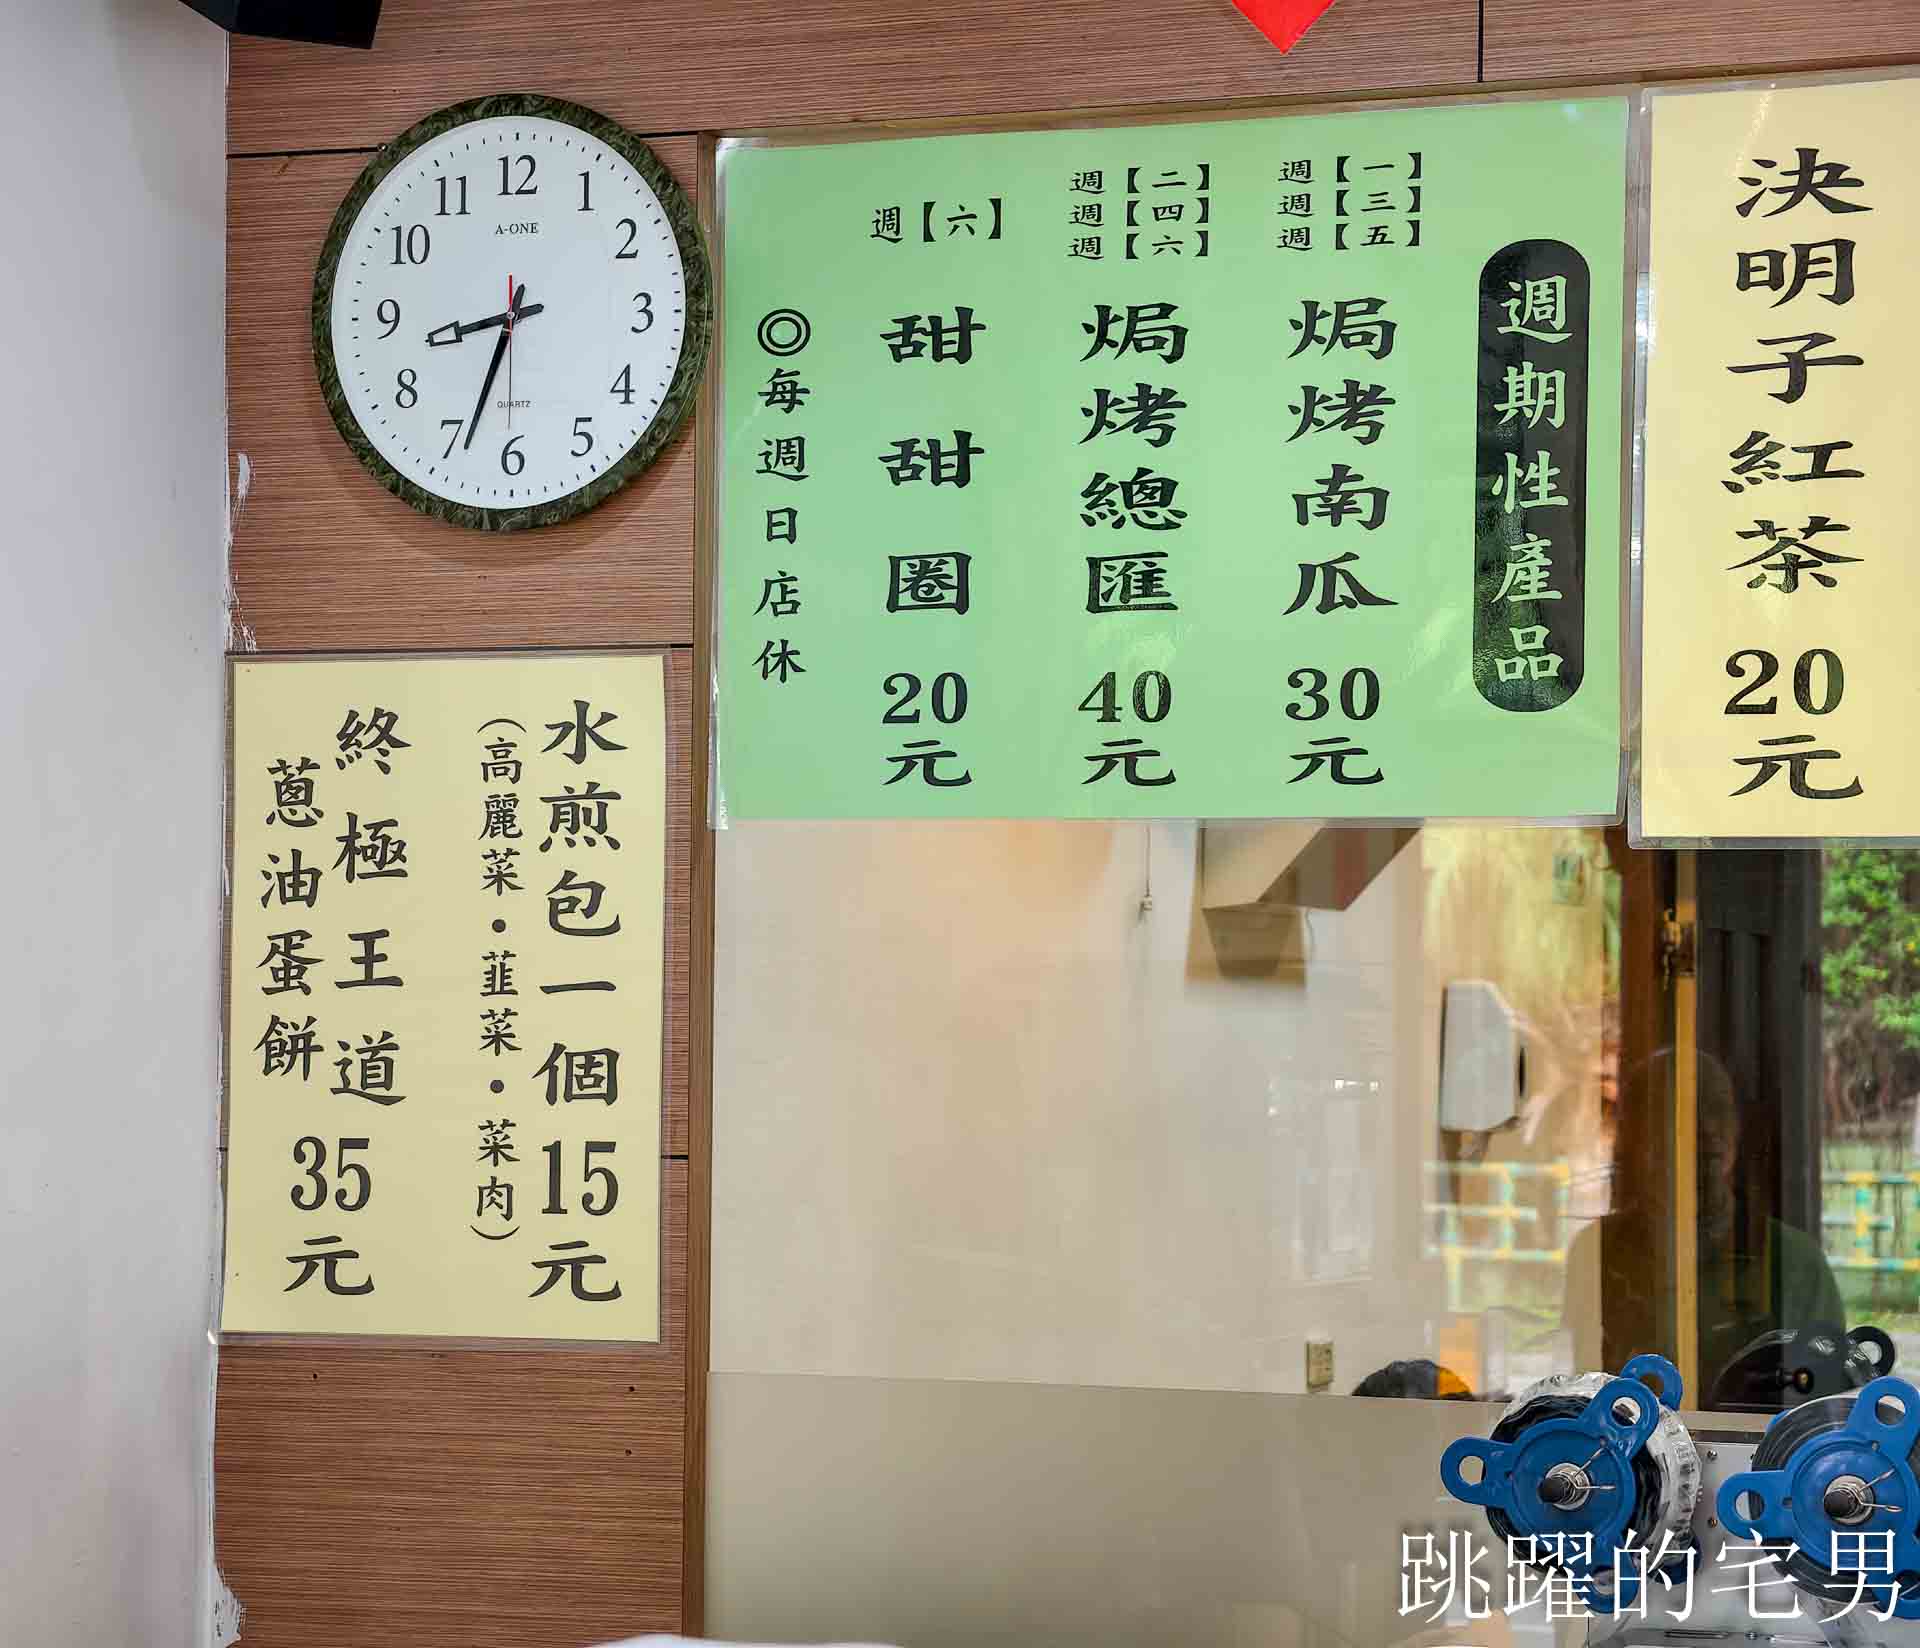 決明子紅茶 20元
週期性產品
週【一】
週【三】
週【五】
焗烤南瓜 30元
週【二】
週【四】
週【六】
焗烤總匯 40元
週【六】
甜甜圈 20元
◎每週日店休
12
1
2
3
4
5
6
7
8
9
10
11
A-ONE
QUARTZ
水煎包一個15元
(高麗菜•韮菜•菜肉)
終極王道
蔥油蛋餅
35元
跳躍的宅男